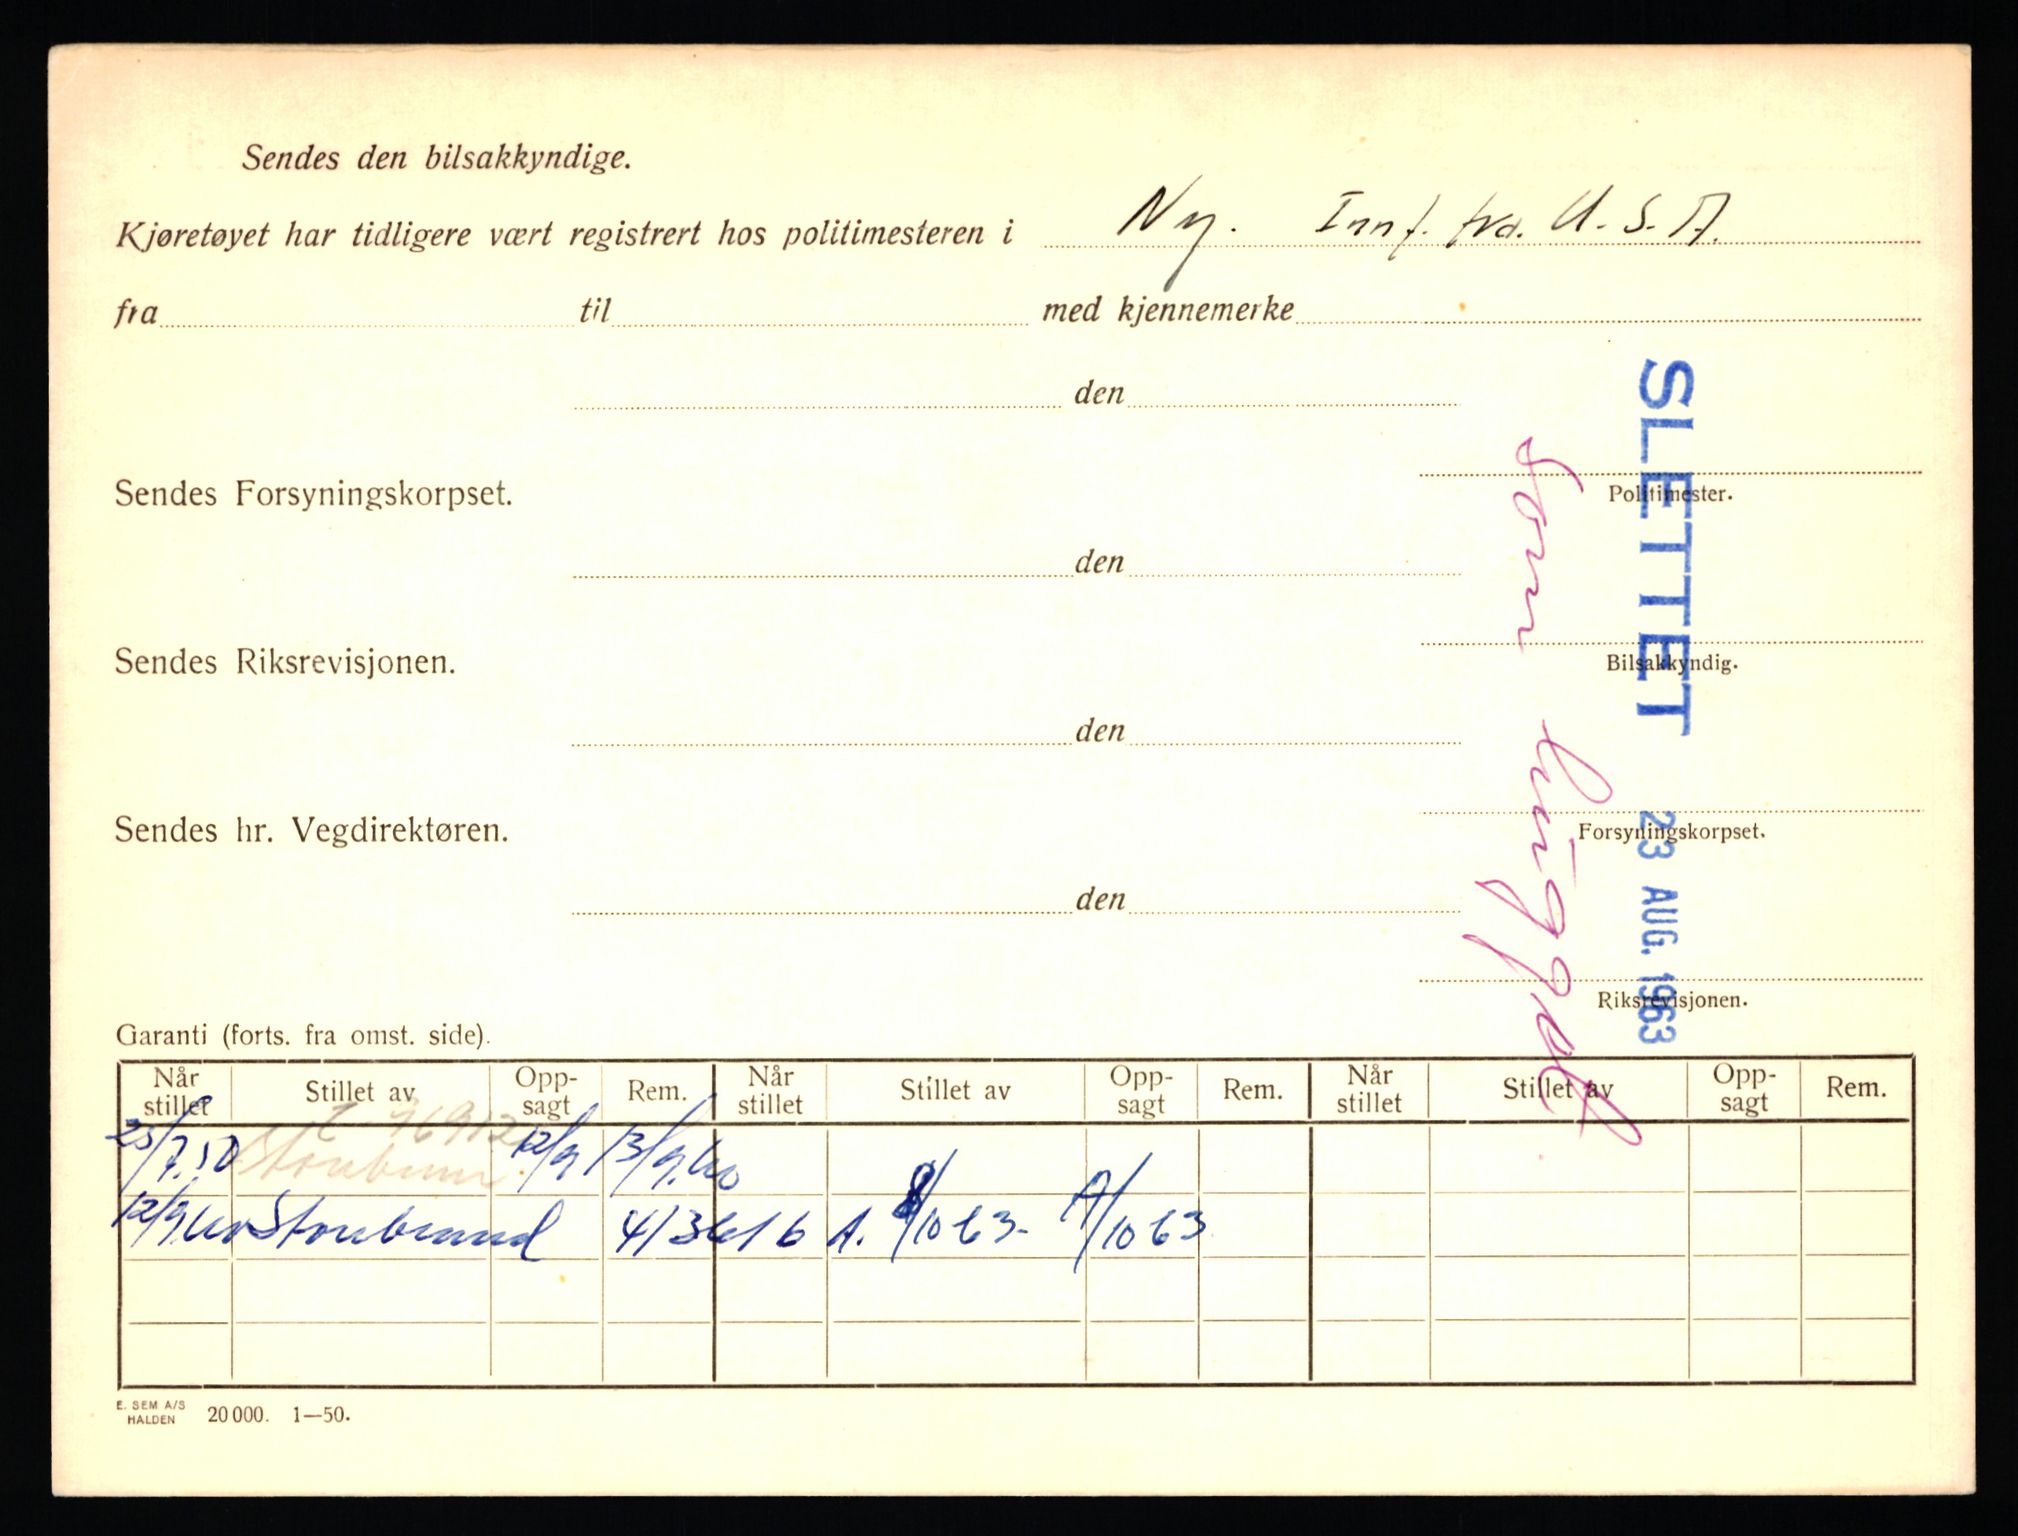 Sendes den bilsakkyndige.
Kjøretøyet har tidligere vært registrert hos politimesteren i Ny. Innf. fra. U.S.A.
fra til med kjennemerke
den
Politimester.
Sendes Forsyningskorpset.
den
Bilsakkyndig.
Sendes Riksrevisjonen.
den
Forsyningskorpset.
Sendes hr. Vegdirektøren.
den
Riksrevisjonen.
SLETTET 23 AUG. 1963
som
Garanti (forts. fra omst. side).
Når stillet Stillet av Opp-sagt Rem. Når stillet Stillet av Opp-sagt Rem. Når stillet Stillet av Opp-sagt Rem.
25/7.50 12/9 13/9.60
12/9.60 Storebrand 413616 A. 8/10 63. A/10 63
E. SEM A/S
HALDEN 20 000. 1—50.